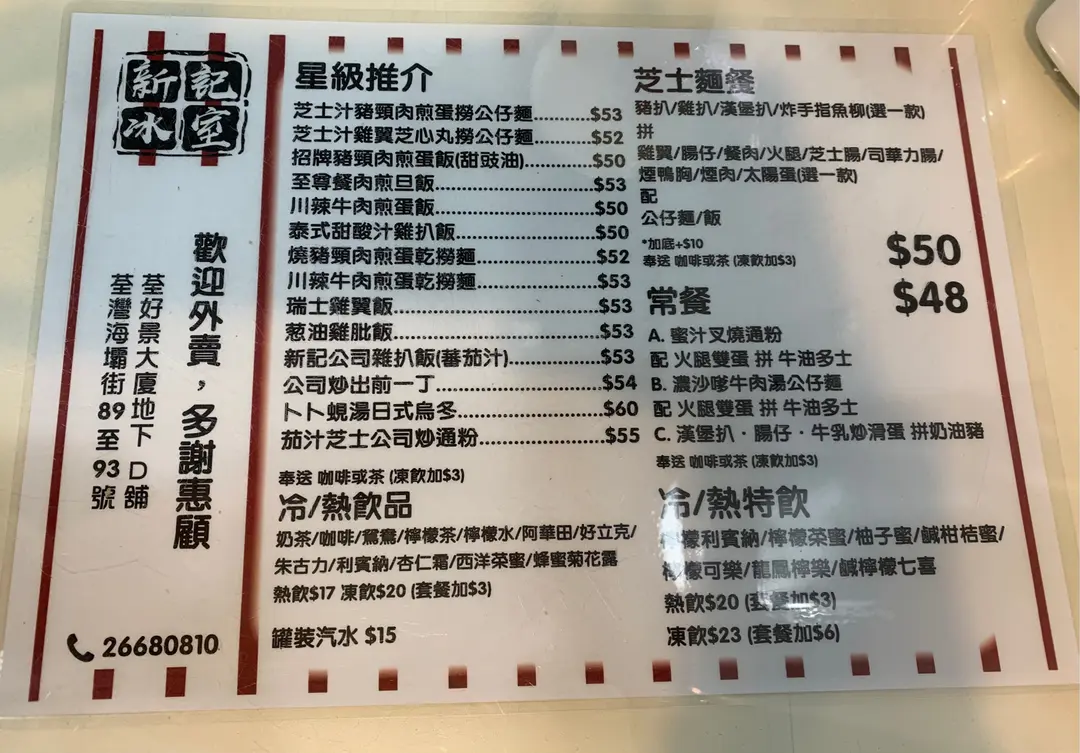 新記
冰室
歡迎外賣，多謝惠顧
荃好景大廈地下 D 舖
荃灣海壩街 89 至 93 號
26680810
星級推介
芝士汁豬頸肉煎蛋撈公仔麵..........$53
芝士汁雞翼芝心丸撈公仔麵..........$52
招牌豬頸肉煎蛋飯(甜豉油)..........$50
至尊餐肉煎旦飯..........$53
川辣牛肉煎蛋飯..........$50
泰式甜酸汁雞扒飯..........$50
燒豬頸肉煎蛋乾撈麵..........$52
川辣牛肉煎蛋乾撈麵..........$53
瑞士雞翼飯..........$53
葱油雞肶飯..........$53
新記公司雜扒飯(蕃茄汁)..........$53
公司炒出前一丁..........$54
卜卜蜆湯日式烏冬..........$60
茄汁芝士公司炒通粉..........$55
奉送 咖啡或茶 (凍飲加$3)
冷/熱飲品
奶茶/咖啡/鴛鴦/檸檬茶/檸檬水/阿華田/好立克/
朱古力/利賓納/杏仁霜/西洋菜蜜/蜂蜜菊花露
熱飲$17 凍飲$20 (套餐加$3)
罐裝汽水 $15
芝士麵餐
豬扒/雞扒/漢堡扒/炸手指魚柳(選一款)
拼
雞翼/腸仔/餐肉/火腿/芝士腸/司華力腸/
煙鴨胸/煙肉/太陽蛋(選一款)
配
公仔麵/飯
*加底+$10
奉送 咖啡或茶 (凍飲加$3)
$50
常餐
$48
A. 蜜汁叉燒通粉
配 火腿雙蛋 拼 牛油多士
B. 濃沙嗲牛肉湯公仔麵
配 火腿雙蛋 拼 牛油多士
C. 漢堡扒．腸仔．牛乳炒滑蛋 拼奶油豬
奉送 咖啡或茶 (凍飲加$3)
冷/熱特飲
檸檬利賓納/檸檬菜蜜/柚子蜜/鹹柑桔蜜/
檸檬可樂/龍鳳檸樂/鹹檸檬七喜
熱飲$20 (套餐加$3)
凍飲$23 (套餐加$6)